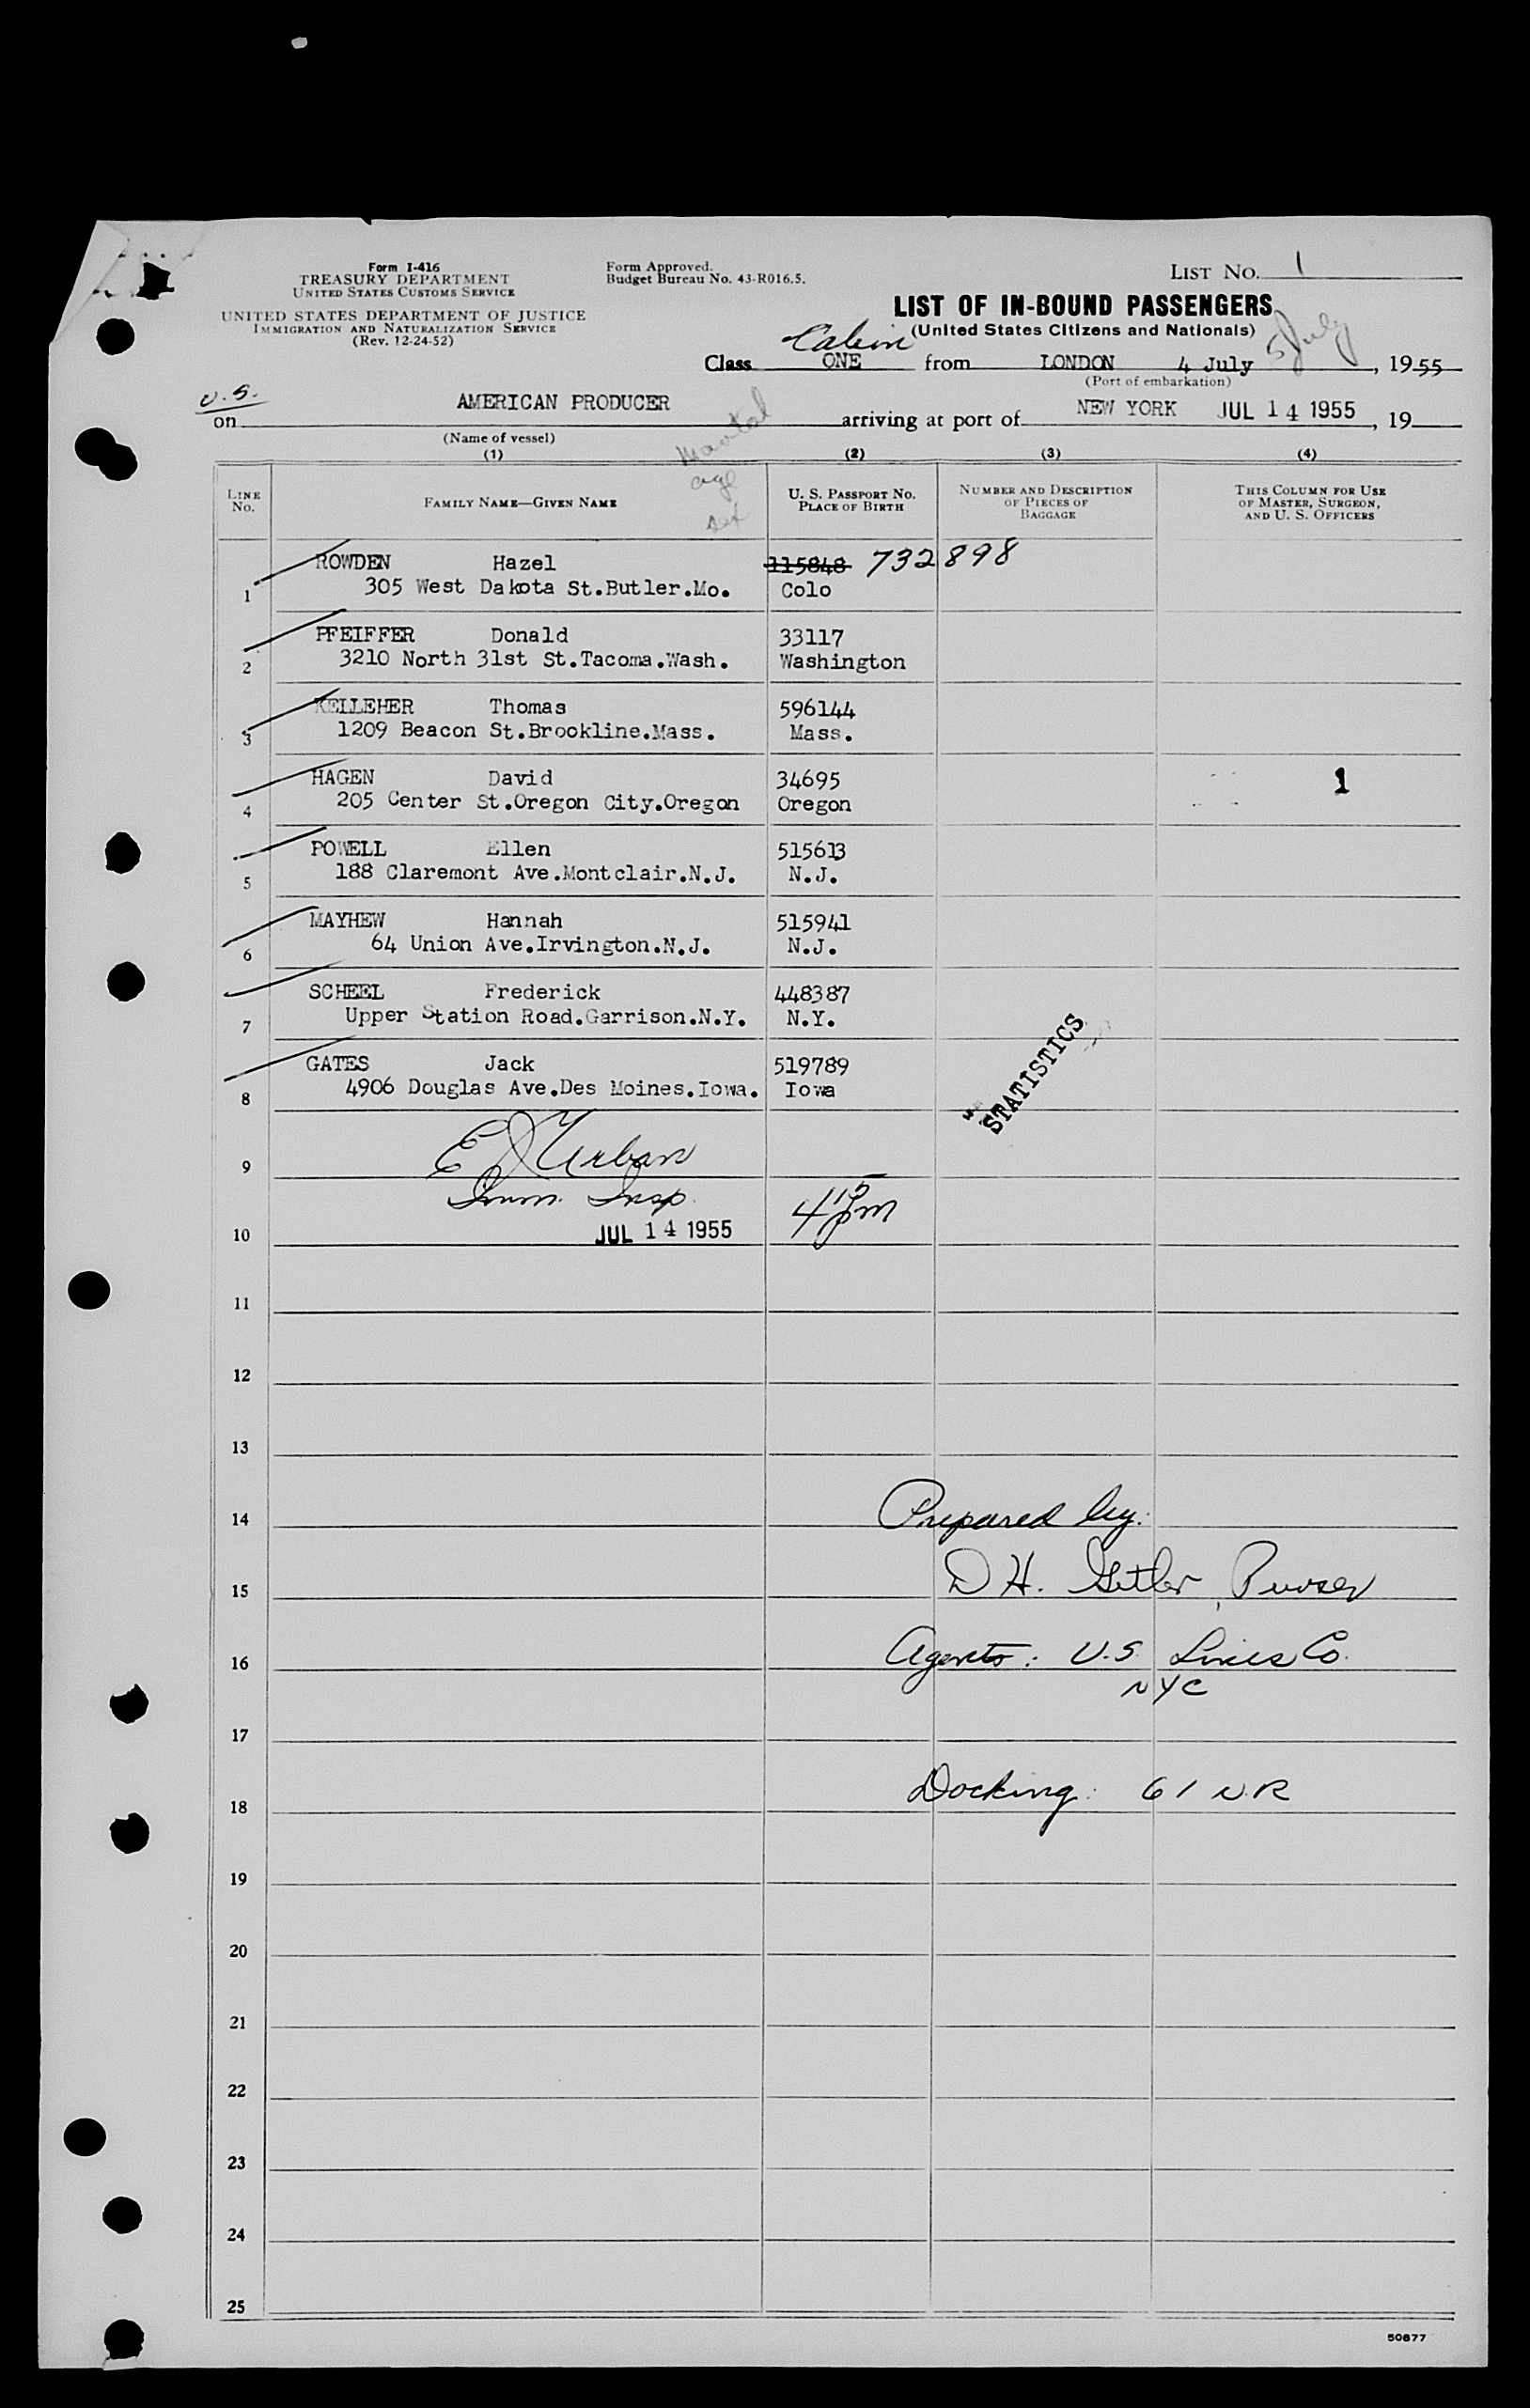 Form I-416
TREASURY DEPARTMENT
UNITED STATES CUSTOMS SERVICE
UNITED STATES DEPARTMENT OF JUSTICE
IMMIGRATION AND NATURALIZATION SERVICE
(Rev. 12-24-52)
Form Approved.
Budget Bureau No. 43-R016.5.
LIST NO. 1
LIST OF IN-BOUND PASSENGERS
(United States Citizens and Nationals)
Cabin
5 July
Class ONE from LONDON 4 July, 1955
(Port of embarkation)
U.S.
on AMERICAN PRODUCER arriving at port of NEW YORK JUL 14 1955, 19
(Name of vessel)
(1) (2) (3) (4)
age
sex
LINE No.
FAMILY NAME—GIVEN NAME
U. S. PASSPORT NO.
PLACE OF BIRTH
NUMBER AND DESCRIPTION
OF PIECES OF
BAGGAGE
THIS COLUMN FOR USE
OF MASTER, SURGEON,
AND U. S. OFFICERS
ROWDEN Hazel 115848 732898
1 305 West Dakota St.Butler.Mo. Colo
PFEIFFER Donald 33117
2 3210 North 31st St.Tacoma.Wash. Washington
KELLEHER Thomas 596144
3 1209 Beacon St.Brookline.Mass. Mass.
HAGEN David 34695 1
4 205 Center St.Oregon City.Oregon Oregon
POWELL Ellen 515613
5 188 Claremont Ave.Montclair.N.J. N.J.
MAYHEW Hannah 515941
6 64 Union Ave.Irvington.N.J. N.J.
SCHEEL Frederick 448387
7 Upper Station Road.Garrison.N.Y. N.Y.
GATES Jack 519789
8 4906 Douglas Ave.Des Moines.Iowa. Iowa
STATISTICS
9 E J Urban
Imm. Insp.
10 JUL 14 1955 4 15 pm
11
12
13
14 Prepared by:
15 D H. Getler, Purser
16 Agents: U.S. Lines Co.
NYC
17
18 Docking: 61 N.R
19
20
21
22
23
24
25
50877